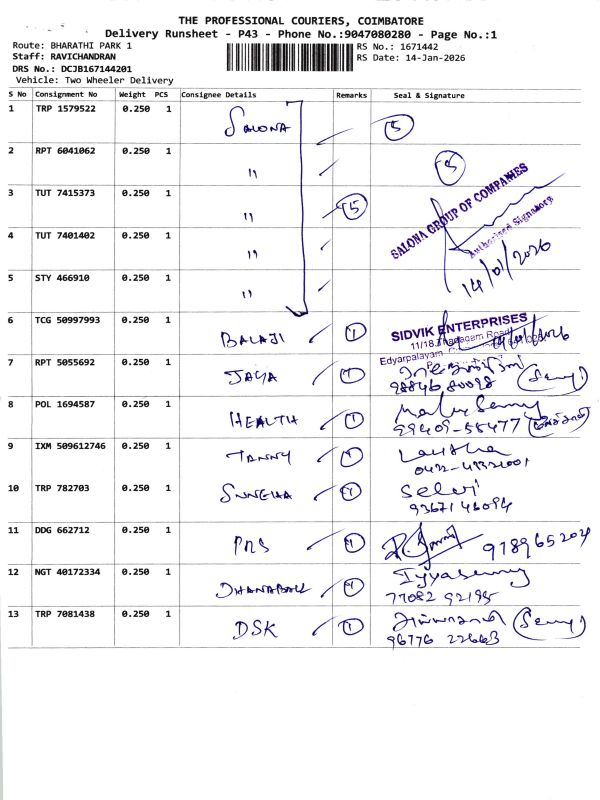 THE PROFESSIONAL COURIERS, COIMBATORE
Delivery Runsheet - P43 - Phone No.:9047080280 - Page No.:1
Route: BHARATHI PARK 1
Staff: RAVICHANDRAN
DRS No.: DCJB167144201
Vehicle: Two Wheeler Delivery
RS No.: 1671442
RS Date: 14-Jan-2026
S No Consignment No Weight PCS Consignee Details Remarks Seal & Signature
1 TRP 1579522 0.250 1 SALONA 5
2 RPT 6041062 0.250 1 " 5
3 TUT 7415373 0.250 1 " 5
4 TUT 7401402 0.250 1 "
5 STY 466910 0.250 1 "
SALONA GROUP OF COMPANIES
Authorised Signatory
14/01/2026
6 TCG 50997993 0.250 1 BALAJI 1
SIDVIK ENTERPRISES
11/18, Thadagam Road
Edyarpalayam
7 RPT 5055692 0.250 1 JAYA 1
98846 80098
8 POL 1694587 0.250 1 HEALTH 1
99409-55477
9 IXM 509612746 0.250 1 TANNY 1
0422-4932001
10 TRP 782703 0.250 1 1 Selvi
93671 46094
11 DDG 662712 0.250 1 PRS 1 978965204
12 NGT 40172334 0.250 1 1 Iyyasamy
77082 92195
13 TRP 7081438 0.250 1 DSK 1
96776 22663